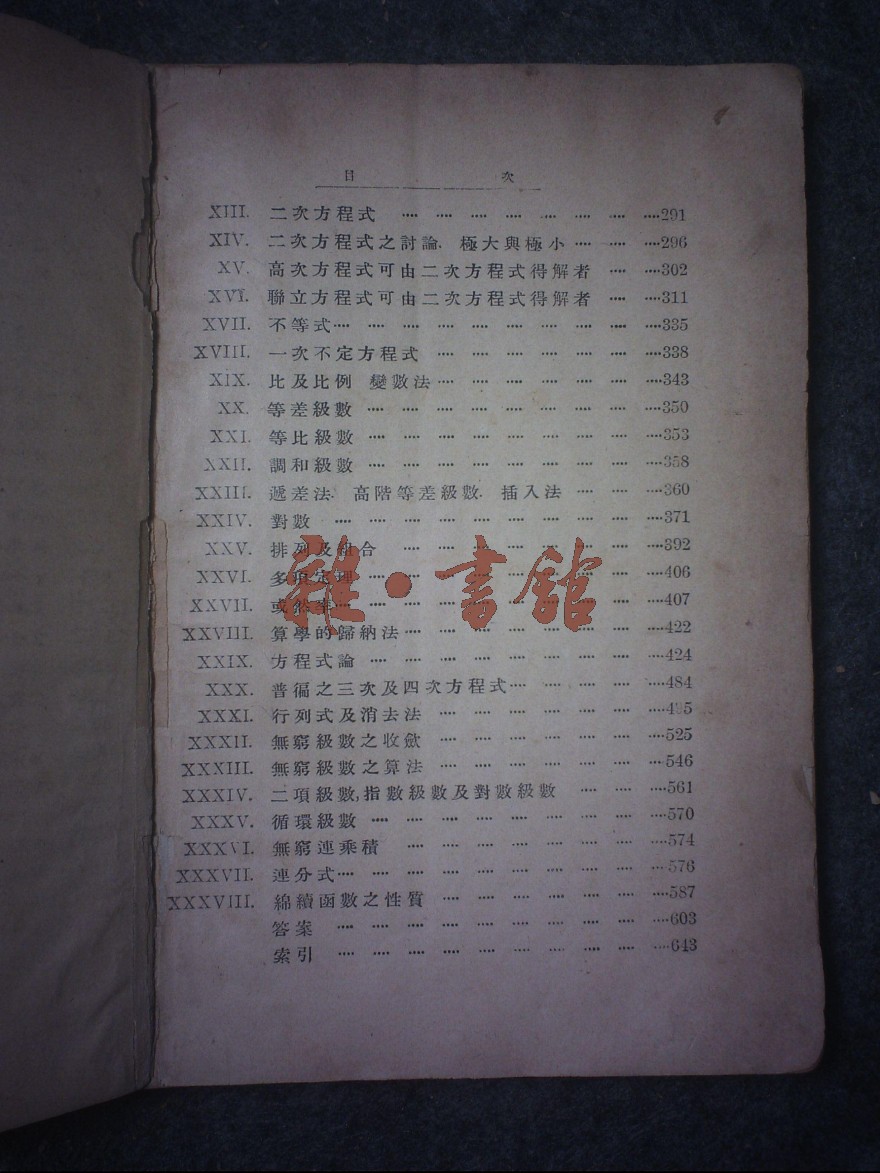 目 次
XIII. 二次方程式 291
XIV. 二次方程式之討論. 極大與極小 296
XV. 高次方程式可由二次方程式得解者 302
XVI. 聯立方程式可由二次方程式得解者 311
XVII. 不等式 335
XVIII. 一次不定方程式 338
XIX. 比及比例 變數法 343
XX. 等差級數 350
XXI. 等比級數 353
XXII. 調和級數 358
XXIII. 遞差法. 高階等差級數. 插入法 360
XXIV. 對數 371
XXV. 排列及組合 392
XXVI. 多項定理 406
XXVII. 或然率 407
XXVIII. 算學的歸納法 422
XXIX. 方程式論 424
XXX. 普徧之三次及四次方程式 484
XXXI. 行列式及消去法 495
XXXII. 無窮級數之收歛 525
XXXIII. 無窮級數之算法 546
XXXIV. 二項級數,指數級數及對數級數 561
XXXV. 循環級數 570
XXXVI. 無窮連乘積 574
XXXVII. 連分式 576
XXXVIII. 綿續函數之性質 587
答案 603
索引 643
雜·書館